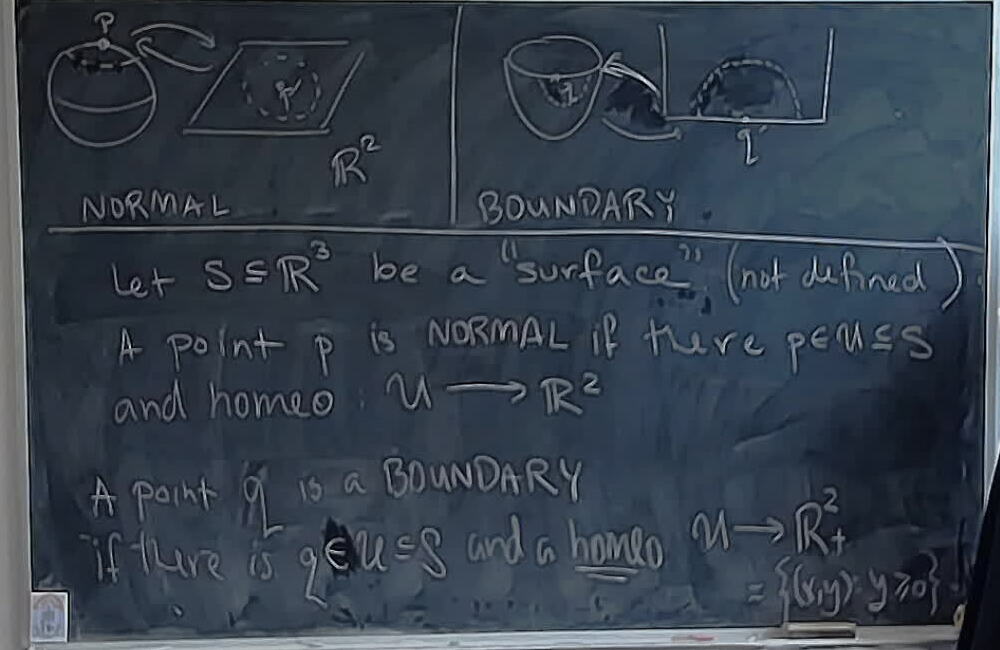 p
p'
ℝ²
NORMAL
q
q'
BOUNDARY
Let S ⊆ ℝ³ be a "surface" (not defined)
A point p is NORMAL if there p ∈ U ⊆ S
and homeo : U ⟶ ℝ²
A point q is a BOUNDARY
if there is q ∈ U ⊆ S and a homeo U → ℝ²₊
= {(x,y) : y ⩾ 0}